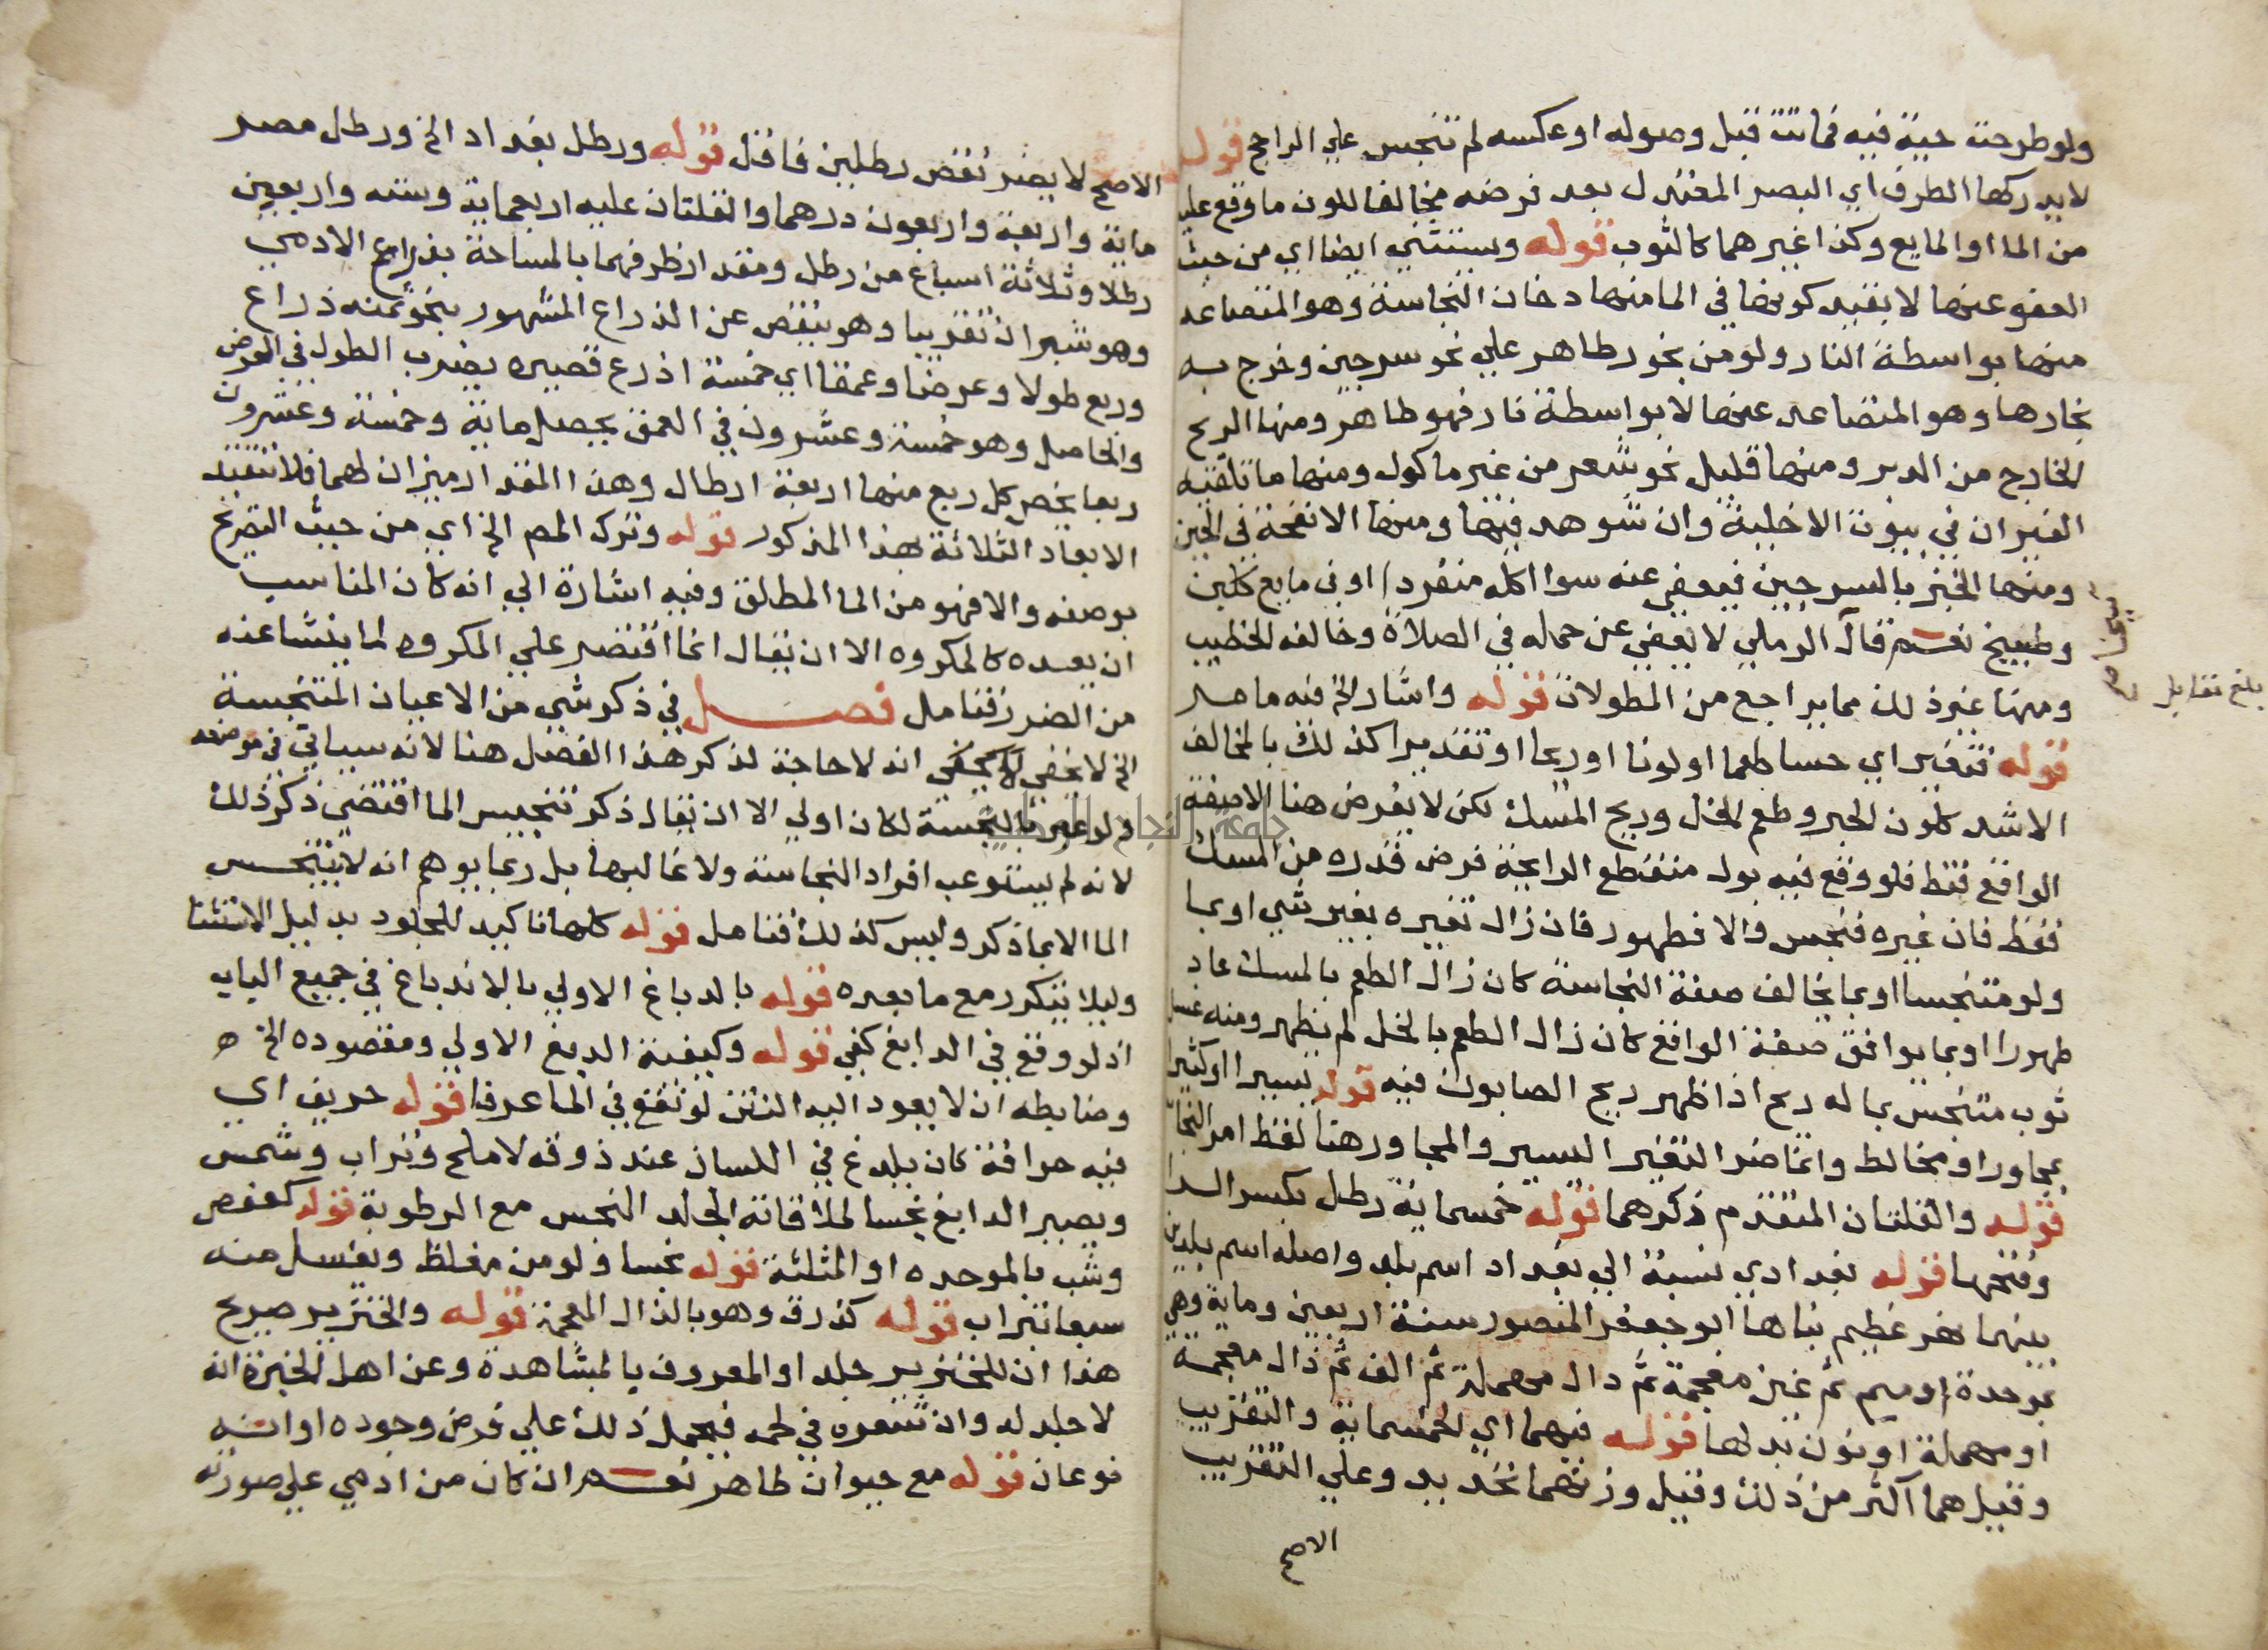 ولو طرحت حية فيه فماتت قبل وصوله او عكسه لم تنجس علي الراجح قوله
لا يدركها الطرف اي البصر المعتدل بعد فرضه مخالفا للون ما وقع عليه
من الما او المايع وكذا غيرهما كالثوب قوله ويستثني ايضا اي من حيث
العفو عنها لا بقيد كونها في الما منها دخان النجاسة وهو المتصاعد
منها بواسطة النار ولو من بخور طاهر علي نحو سرجين وخرج به
بخارها وهو المتصاعد عنها لا بواسطة نار فهو طاهر ومنها الريح
الخارج من الدبر ومنها قليل نحو شعر من غير ماكول ومنها ما تلقيه
الفيران في بيوت الاخلية وان شوهد فيها ومنها الانفحة في الجبن
ومنها الخبز بالسرجين فيعفي عنه سوا اكله منفردا او في مايع كلبن
وطبيخ نعم قال الرملي لا يعفي عن حمله في الصلاة وخالفه الخطيب
ومنها غير ذلك مما يراجع من المطولات قوله واشار الخ فيه ما مر
قوله فتغير اي حسا طعما او لونا او ريحا او تقديرا كذلك بالمخالف
الاشد كلون الحبر وطعم الخل وريح المسك لكن لا يفرض هنا الا صفة
الواقع فقط فلو وقع فيه بول منقطع الرايحة فرض قدره من المسك
فقط فان غيره فنجس والا فطهور فان زال تغيره بغير شي او بما
ولو متنجسا او بما يخالف صفة النجاسة كان زال الطعم بالمسك عاد
طهورا او بما يوافق صفة الواقع كان زال الطعم بالخل لم يطهر ومنه غسل
ثوب متنجس بما له ريح اذا ظهر ريح الصابون فيه قوله يسيرا او كثيرا
بمجاور او مخالط وانما ضر التغير اليسير والمجاور هنا لغلظ امر النجا
قوله والقلتان المتقدم ذكرهما قوله خمسماية رطل بكسر الرا
وفتحها قوله بغدادي نسبة الي بغداد اسم بلد واصله اسم بلدين
بينهما نهر عظيم بناها ابو جعفر المنصور سنة اربعين وماية وهي
بموحدة او ميم ثم غين معجمة ثم دال مهملة ثم الف ثم ذال معجمة
او مهملة او نون بدلها قوله فيهما اي الخمسماية والتقريب
وقيل هما اكثر من ذلك وقيل وزنهما تحديد وعلي التقريب
الاصح
بلغ مقابلة
الاصح لا يضر نقص رطلين فاقل قوله ورطل بغداد الخ ورطل مصر
ماية واربعة واربعون درهما والقلتان عليه اربعماية وستة واربعين
رطلا وثلاثة اسباع من رطل ومقدار ظرفهما بالمساحة بذراع الادمي
وهو شبران تقريبا وهو ينقص عن الذراع المشهور بنحو ثمنه ذراع
وربع طولا وعرضا وعمقا اي خمسة اذرع قصيرة بضرب الطول في العرض
والحاصل وهو خمسة وعشرون في العمق يحصل ماية وخمسة وعشرون
ربعا يخص كل ربع منها اربعة ارطال وهذا المقدار ميزان لهما فلا تتقيد
الابعاد الثلاثة بهذا المذكور قوله وترك المص الخ اي من حيث التصريح
بوصفه والا فهو من الما المطلق وفيه اشارة الي انه كان المناسب
ان يعده كالمكروه الا ان يقال انما اقتصر علي المكروه لما ينشا عنه
من الضرر فتامل فصل في ذكر شي من الاعيان المتنجسة
الخ لا يخفي انه لا حاجة لذكر هذا الفصل هنا لانه سياتي في موضعه
ولو عبر بالنجسة لكان اولي الا ان يقال ذكر تنجيس الما اقتضي ذكر ذلك
لانه لم يستوعب افراد النجاسة ولا غالبها بل ربما يوهم انه لا يتنجس
الما الا بما ذكر وليس كذلك فتامل قوله كلها تاكيد للجلود بدليل الاستثنا
وليلا يتكرر مع ما بعده قوله بالدباغ الاولي بالاندباغ في جميع الباب
اذ لو وقع في الدابغ كفي قوله وكيفية الدبغ الاولي ومقصوده الخ
وضابطه ان لا يعود اليه النتن لو نقع في الما عرفا قوله حريف اي
فيه حرافة كان يلدغ في اللسان عند ذوقه لا ملح وتراب وشمس
ويصير الدابغ نجسا لملاقاته الجلد النجس مع الرطوبة قوله كعفص
وشب بالموحدة او المثلثة قوله نجسا ولو من مغلظ ويغسل منه
سبعا بتراب قوله كذرق وهو بالذال المعجمة قوله والخنزير صريح
هذا ان للخنزير جلد او المعروف بالمشاهدة وعن اهل الخبرة انه
لا جلد له وان شعره في لحمه فيحمل ذلك علي فرض وجوده او انه
نوعان قوله مع حيوان طاهر نعم ان كان من ادمي علي صورته